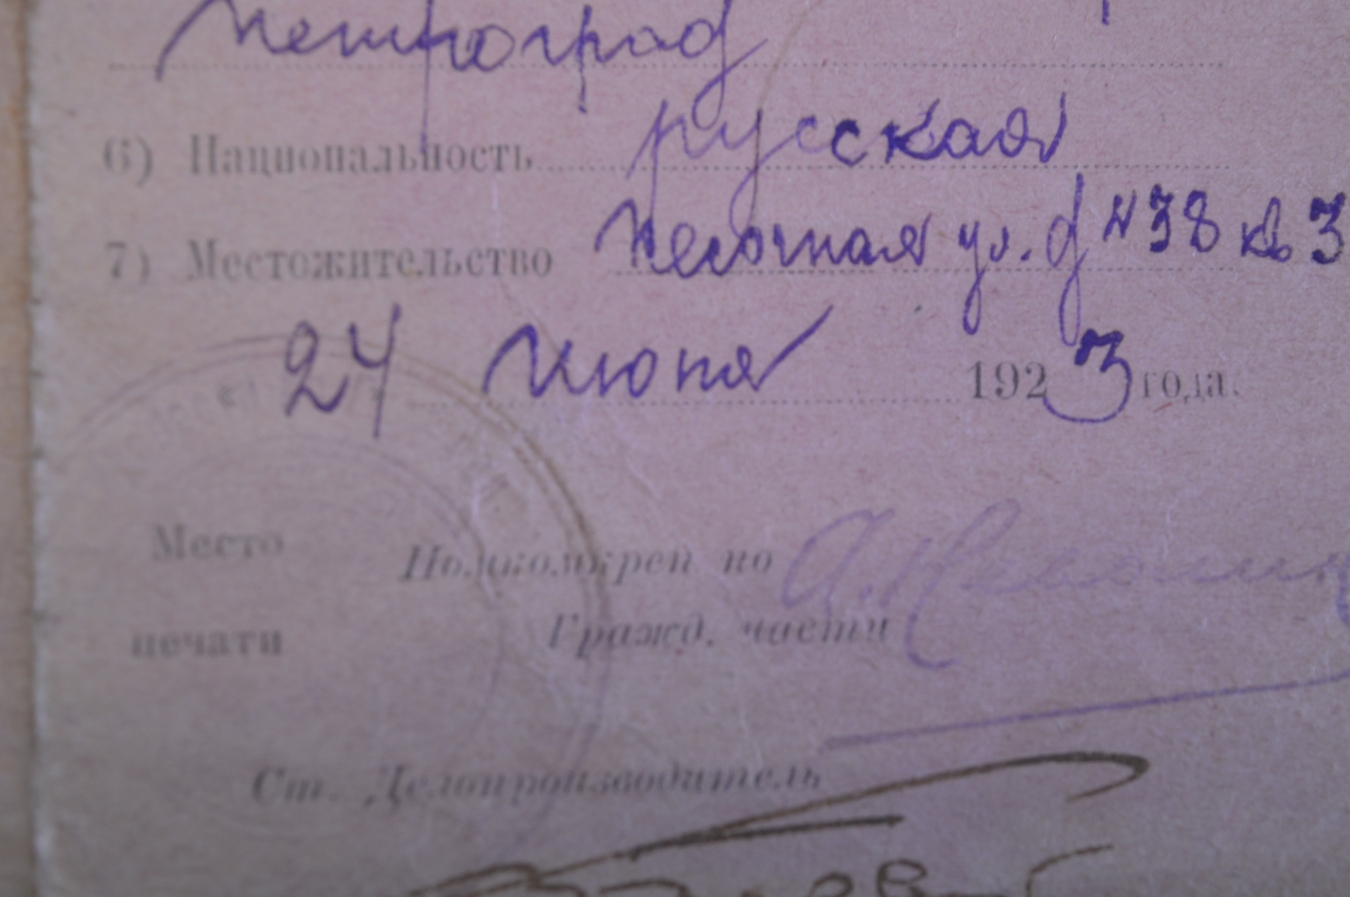 Петроград
6) Национальность русская
7) Местожительство Песочная ул. д № 38 кв 3
24 июня 1923 года.
Место Помкомкреп по
печати Гражд. части
Ст. Делопроизводитель